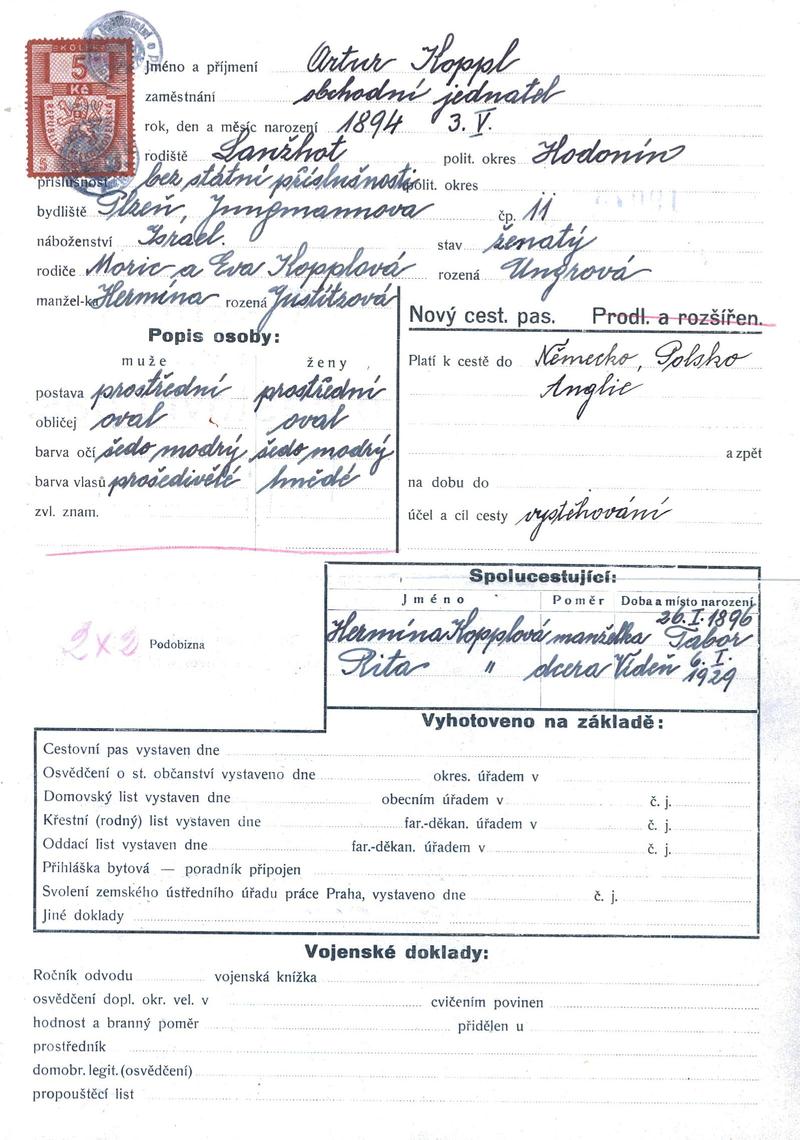 KOLEK
5
Kč
Jméno a příjmení Artur Koppl
zaměstnání obchodní jednatel
rok, den a měsíc narození 1894 3. V.
rodiště Lanžhot polit. okres Hodonín
příslušnost bez státní příslušnosti polit. okres
bydliště Plzeň, Jungmannova čp. 11
náboženství Israel. stav ženatý
rodiče Moric a Eva Kopplová rozená Ungrová
manžel-ka Hermína rozená Justitzová
Nový cest. pas. Prodl. a rozšířen.
Popis osoby:
muže ženy
postava prostřední prostřední
obličej oval oval
barva očí šedo modrý šedo modrý
barva vlasů prošedivělé hnědé
zvl. znam.
Platí k cestě do Německo, Polsko
Anglie
a zpět
na dobu do
účel a cíl cesty vystěhování
Spolucestující:
Jméno Poměr Doba a místo narození
26. I. 1896
Hermína Kopplová manželka Tábor
Rita " dcera Vídeň 6. I.
1929
2x2 Podobizna
Vyhotoveno na základě:
Cestovní pas vystaven dne
Osvědčení o st. občanství vystaveno dne okres. úřadem v
Domovský list vystaven dne obecním úřadem v č. j.
Křestní (rodný) list vystaven dne far.-děkan. úřadem v č. j.
Oddací list vystaven dne far.-děkan. úřadem v č. j.
Přihláška bytová — poradník připojen
Svolení zemského ústředního úřadu práce Praha, vystaveno dne č. j.
Jiné doklady
Vojenské doklady:
Ročník odvodu vojenská knížka
osvědčení dopl. okr. vel. v cvičením povinen
hodnost a branný poměr přidělen u
prostředník
domobr. legit. (osvědčení)
propouštěcí list